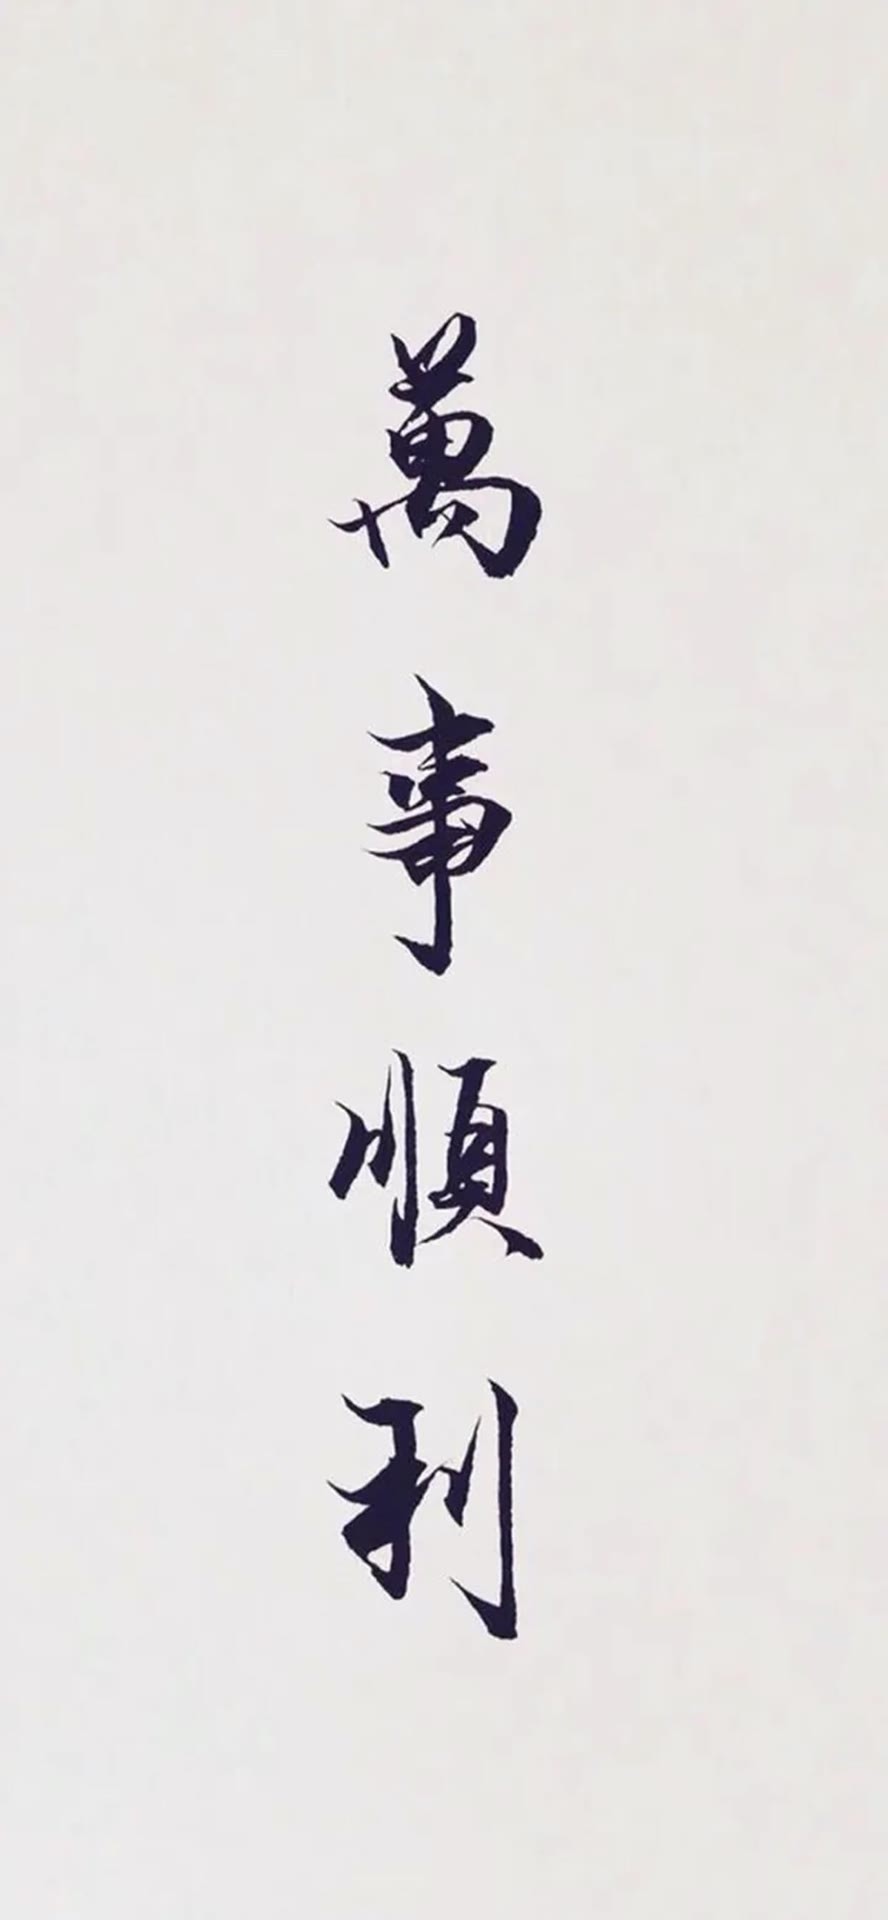 萬事順利